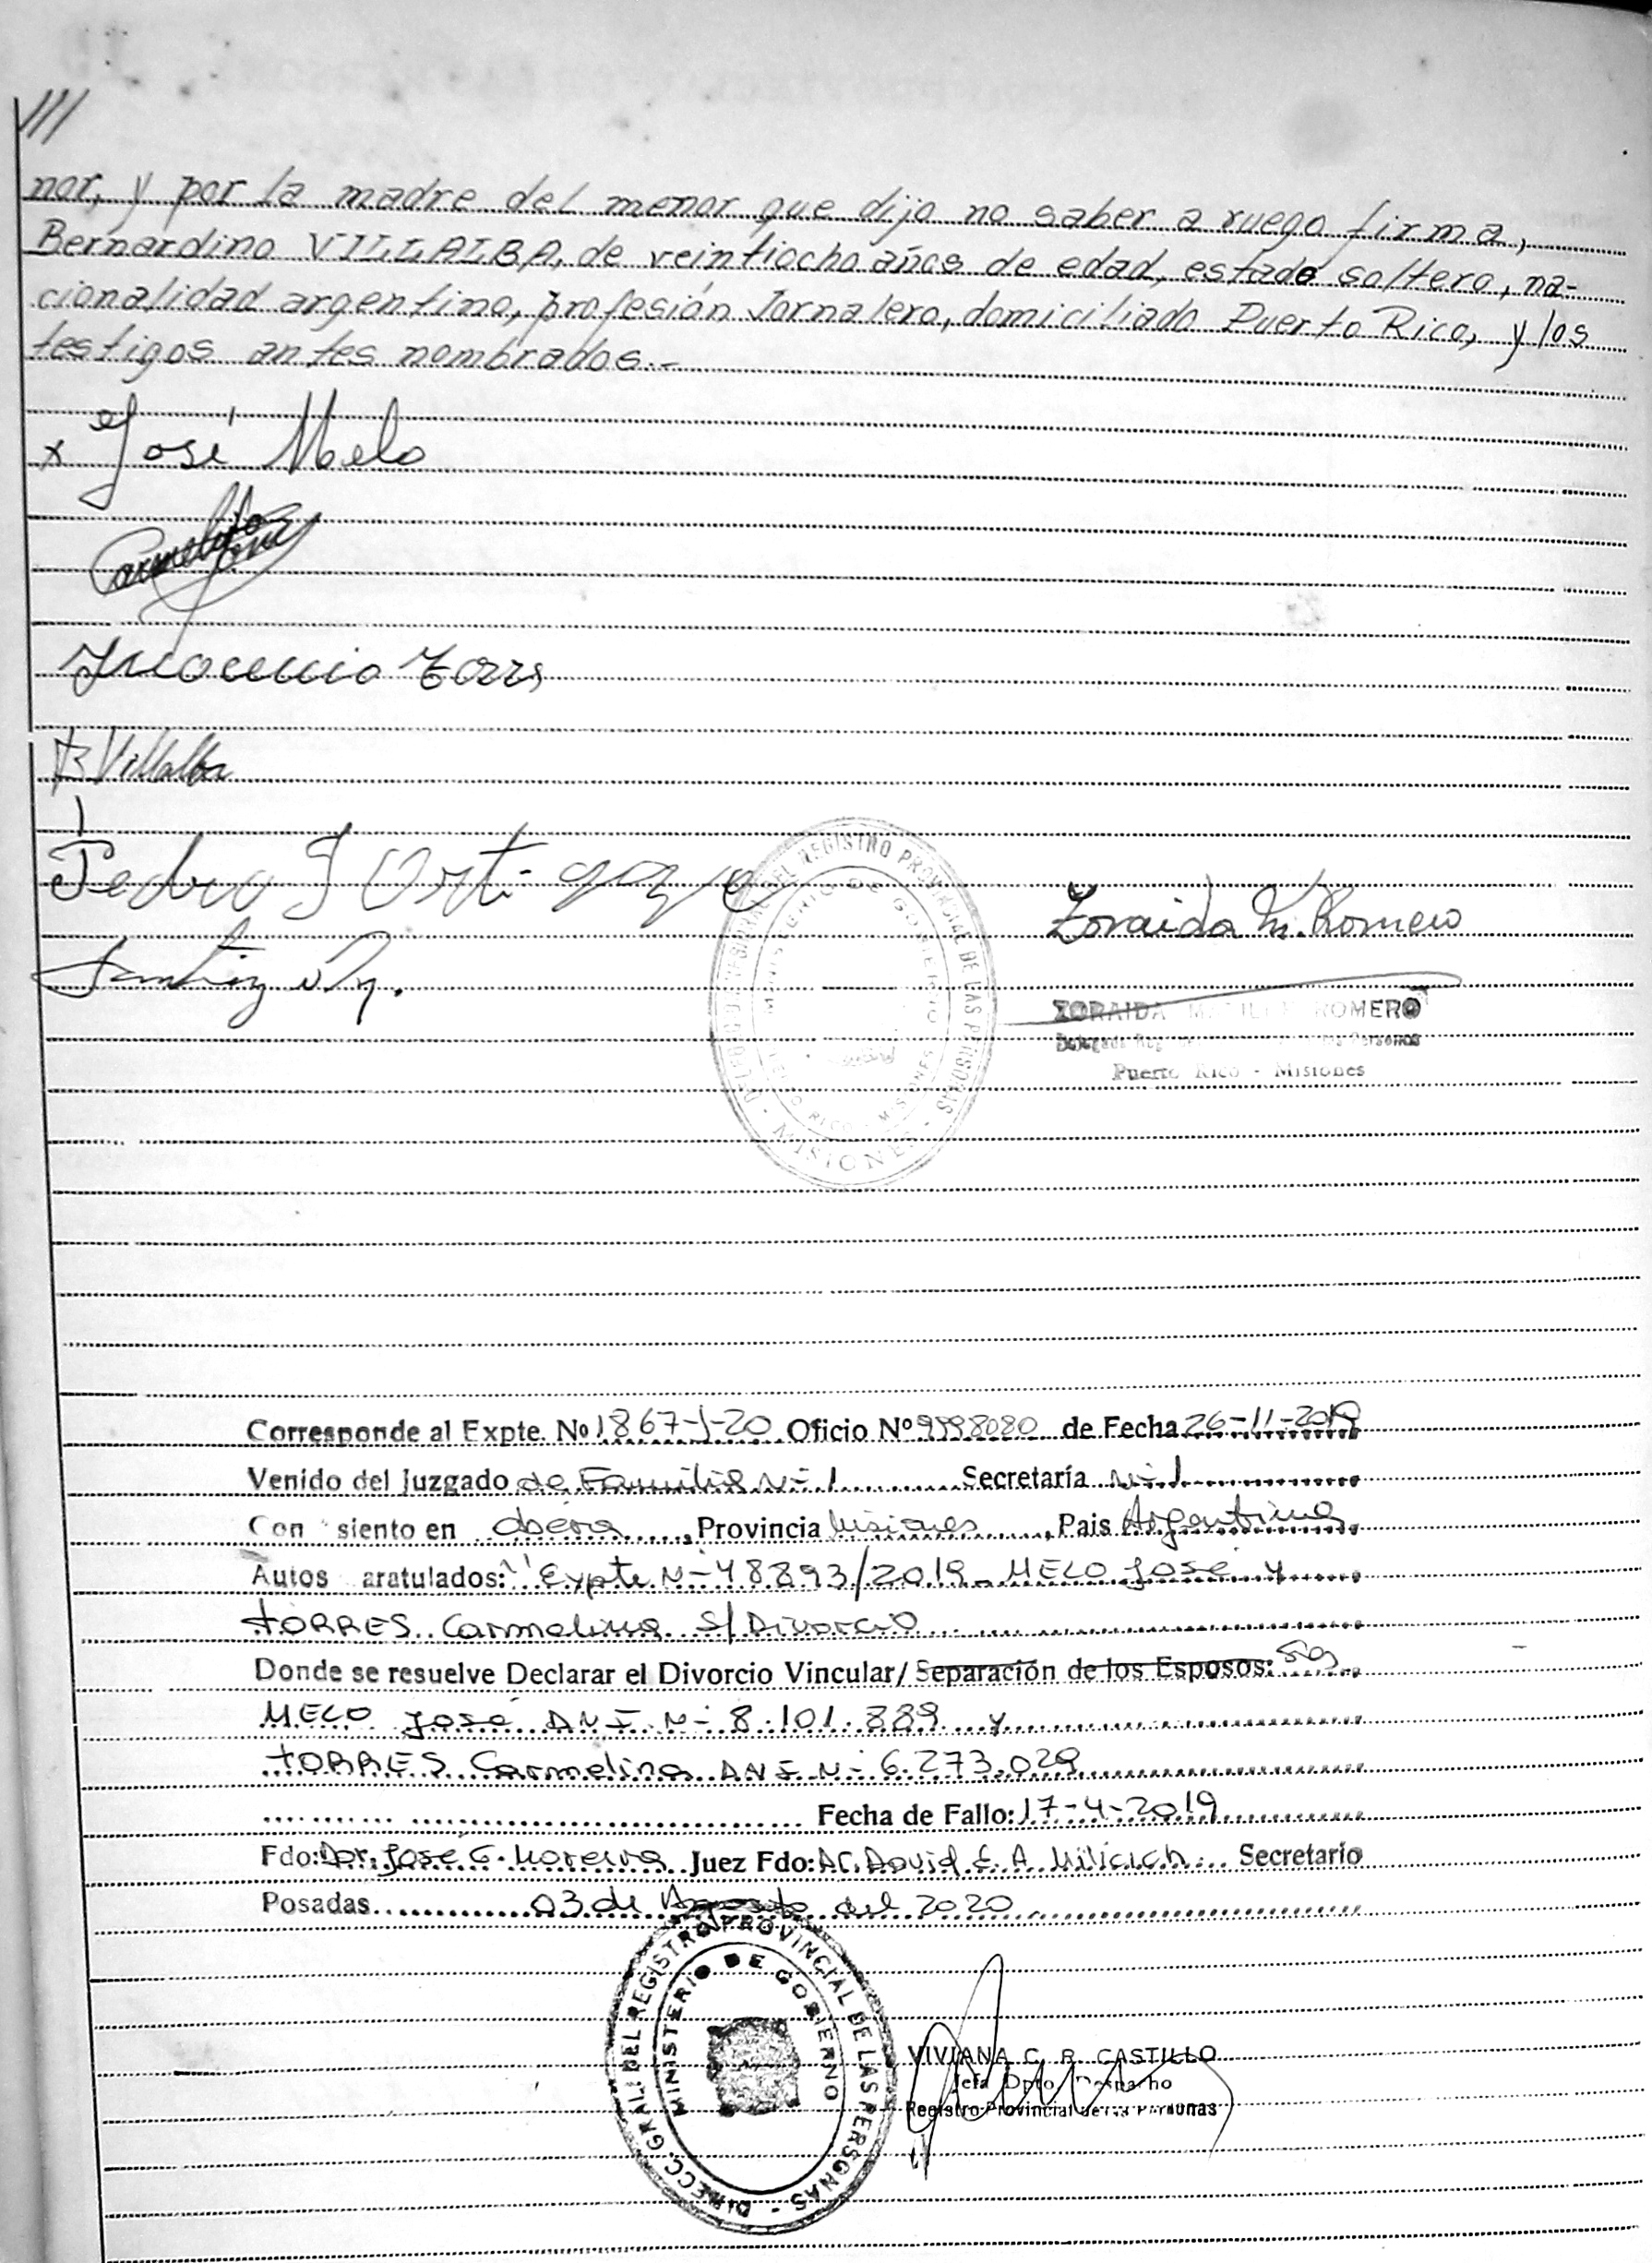 ///
nor, y por la madre del menor que dijo no saber a ruego firma,
Bernardino VILLALBA, de veintiocho años de edad, estado soltero, na-
cionalidad argentino, profesión Jornalero, domiciliado Puerto Rico, y los
testigos antes nombrados.-
x José Melo
Inocencio Torres
B Villalba
Pedro J Ortigoza
DEL REGISTRO PROVINCIAL DE LAS PERSONAS
MINISTERIO DE GOBIERNO
PUERTO RICO - MISIONES
- MISIONES -
Zoraida M. Romero
ZORAIDA MATILDE ROMERO
Puerto Rico - Misiones
Corresponde al Expte. No 1867-J-20 Oficio Nº 9998080 de Fecha 26-11-2019
Venido del Juzgado de Familia Nº 1 Secretaría Nº 1
Con siento en Oberá, Provincia Misiones, Pais Argentina
Autos aratulados: "Expte Nº 48893/2019 MELO José y
TORRES Carmelina S/ Divorcio
Donde se resuelve Declarar el Divorcio Vincular/ Separación de los Esposos:
MELO José DNI Nº 8.101.889 y
TORRES Carmelina DNI Nº 6.273.029
Fecha de Fallo: 17-4-2019
Fdo: Dr. José G. Moreira Juez Fdo: Dr. David E. A. Milicich Secretario
Posadas 03 de Agosto del 2020
DIRECC. GRAL. DEL REGISTRO PROVINCIAL DE LAS PERSONAS -
MINISTERIO DE GOBIERNO
VIVIANA C. R. CASTILLO
Jefa Dpto. Despacho
Registro Provincial de las Personas